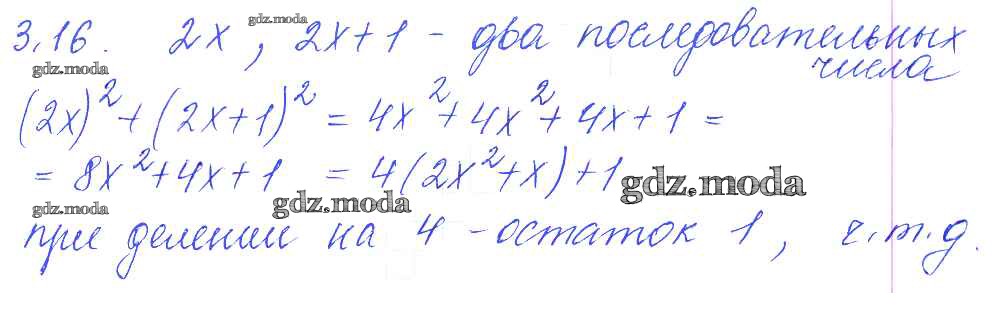 gdz.moda
3.16. 2x, 2x+1 - два последовательных
числа
gdz.moda
(2x)² + (2x+1)² = 4x² + 4x² + 4x + 1 =
= 8x² + 4x + 1 = 4(2x² + x) + 1
gdz.moda
gdz.moda
gdz.moda
при делении на 4 - остаток 1, ч.т.д.